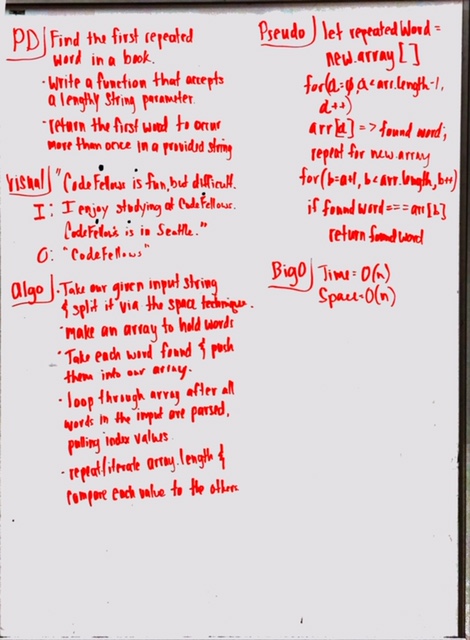 PD Find the first repeated
word in a book.
· Write a function that accepts
a lengthy string parameter.
· return the first word to occur
more than once in a provided string
Visual "CodeFellows is fun, but difficult.
I: I enjoy studying at CodeFellows.
CodeFellows is in Seattle."
O: "CodeFellows"
algo · Take our given input string
& split it via the space technique.
· make an array to hold words
· Take each word found & push
them into our array.
· loop through array after all
words in the input are parsed,
pulling index values.
· repeat/iterate array.length &
compare each value to the others
Pseudo let repeatedWord =
new.array []
for(a=0, a<arr.length-1,
a++)
arr[a] => found word;
repeat for new.array
for(b=a+1, b<arr.length, b++)
if found word === arr[b]
return found word
BigO Time = O(n)
Space = O(n)